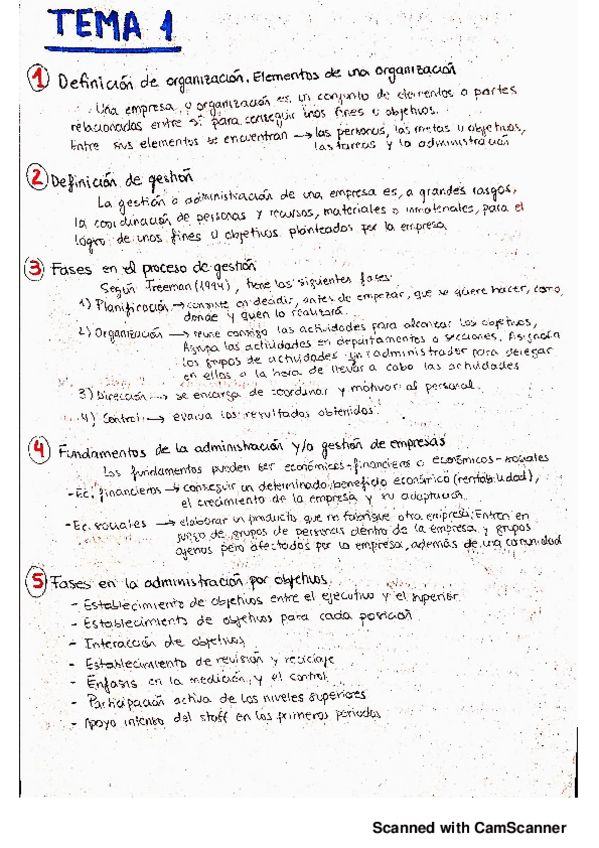 TEMA 1
1 Definición de organización. Elementos de una organización
Una empresa u organización es un conjunto de elementos o partes
relacionadas entre sí para conseguir unos fines u objetivos.
Entre sus elementos se encuentran → las personas, las metas u objetivos,
las tareas y la administración
2 Definición de gestión
La gestión o administración de una empresa es, a grandes rasgos,
la coordinación de personas y recursos, materiales o inmateriales, para el
logro de unos fines u objetivos planteados por la empresa.
3 Fases en el proceso de gestión
Según Freeman (1994), tiene las siguientes fases:
1) Planificación → consiste en decidir, antes de empezar, que se quiere hacer, como,
donde y quien lo realizará.
2) Organización → reune consigo las actividades para alcanzar los objetivos,
Agrupa las actividades en departamentos o secciones. Asignación
los grupos de actividades un administrador para delegar
en ellos a la hora de llevar a cabo las actividades
3) Dirección → se encarga de coordinar y motivar al personal.
4) Control → evalua los resultados obtenidos.
4 Fundamentos de la administración y/o gestión de empresas
Los fundamentos pueden ser económicos-financieros o económicos-sociales
- Ec. financieros → conseguir un determinado beneficio económico (rentabilidad),
el crecimiento de la empresa y su adaptación.
- Ec. sociales → elaborar un producto que no fabrique otra empresa. Entran en
juego de grupos de personas dentro de la empresa y grupos
ajenos pero afectados por la empresa, además de una comunidad
5 Fases en la administración por objetivos
- Establecimiento de objetivos entre el ejecutivo y el superior.
- Establecimiento de objetivos para cada posición
- Interacción de objetivos
- Establecimiento de revisión y reciclaje
- Énfasis en la medición y el control
- Participación activa de los niveles superiores
- Apoyo intenso del staff en los primeros periodos
Scanned with CamScanner